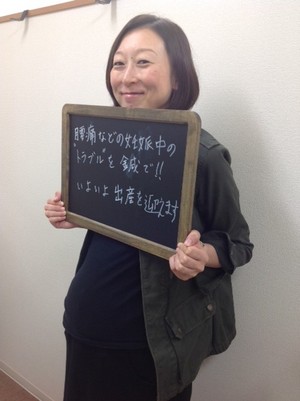 腰痛などの妊娠中の
"トラブル"を鍼灸で!!
いよいよ出産を迎えます